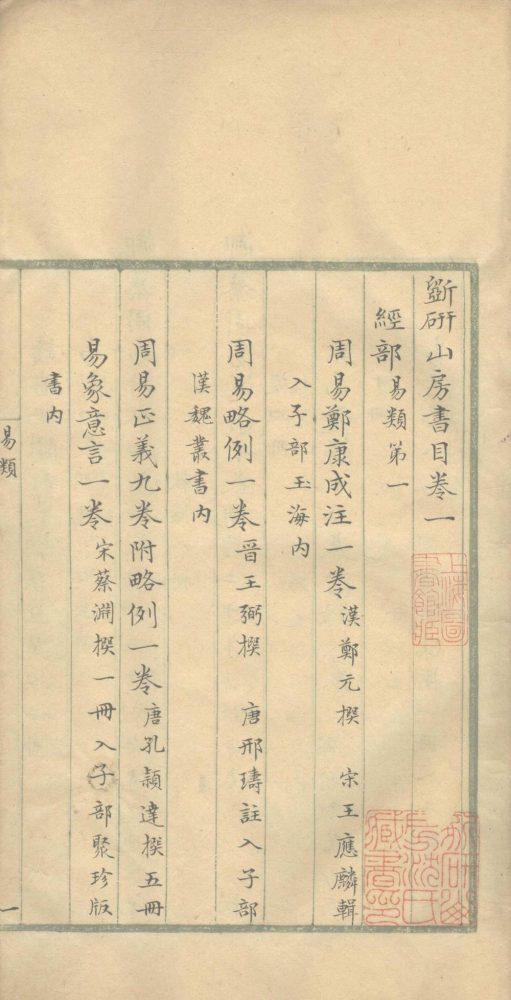 斲研山房書目卷一
經部 易類第一
周易鄭康成注一卷 漢鄭元撰 宋王應麟輯
入子部玉海內
周易略例一卷 晉王弼撰 唐邢璹註入子部
漢魏叢書內
周易正義九卷附略例一卷 唐孔穎達撰五冊
易象意言一卷 宋蔡淵撰一冊入子部聚珍版
書內
易類
一
上海圖書館藏